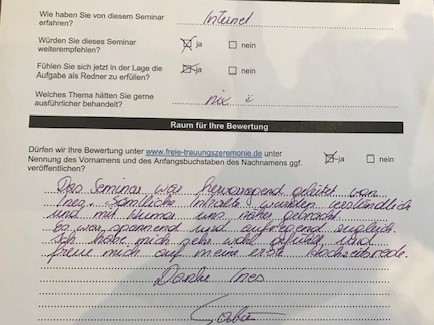 Wie haben Sie von diesem Seminar
erfahren? Internet
Würden Sie dieses Seminar
weiterempfehlen? ja nein
Fühlen Sie sich jetzt in der Lage die
Aufgabe als Redner zu erfüllen? ja nein
Welches Thema hätten Sie gerne
ausführlicher behandelt? nix
Raum für Ihre Bewertung
Dürfen wir Ihre Bewertung unter www.freie-trauungszeremonie.de unter
Nennung des Vornamens und des Anfangsbuchstaben des Nachnamens ggf.
veröffentlichen? ja nein
Das Seminar war hervorragend geleitet von
Ines. Sämtliche Inhalte wurden verständlich
und mit Humor uns näher gebracht.
Es war spannend und aufregend zugleich.
Ich habe mich sehr wohl gefühlt und
freue mich auf meine erste Hochzeitsrede.
Danke Ines